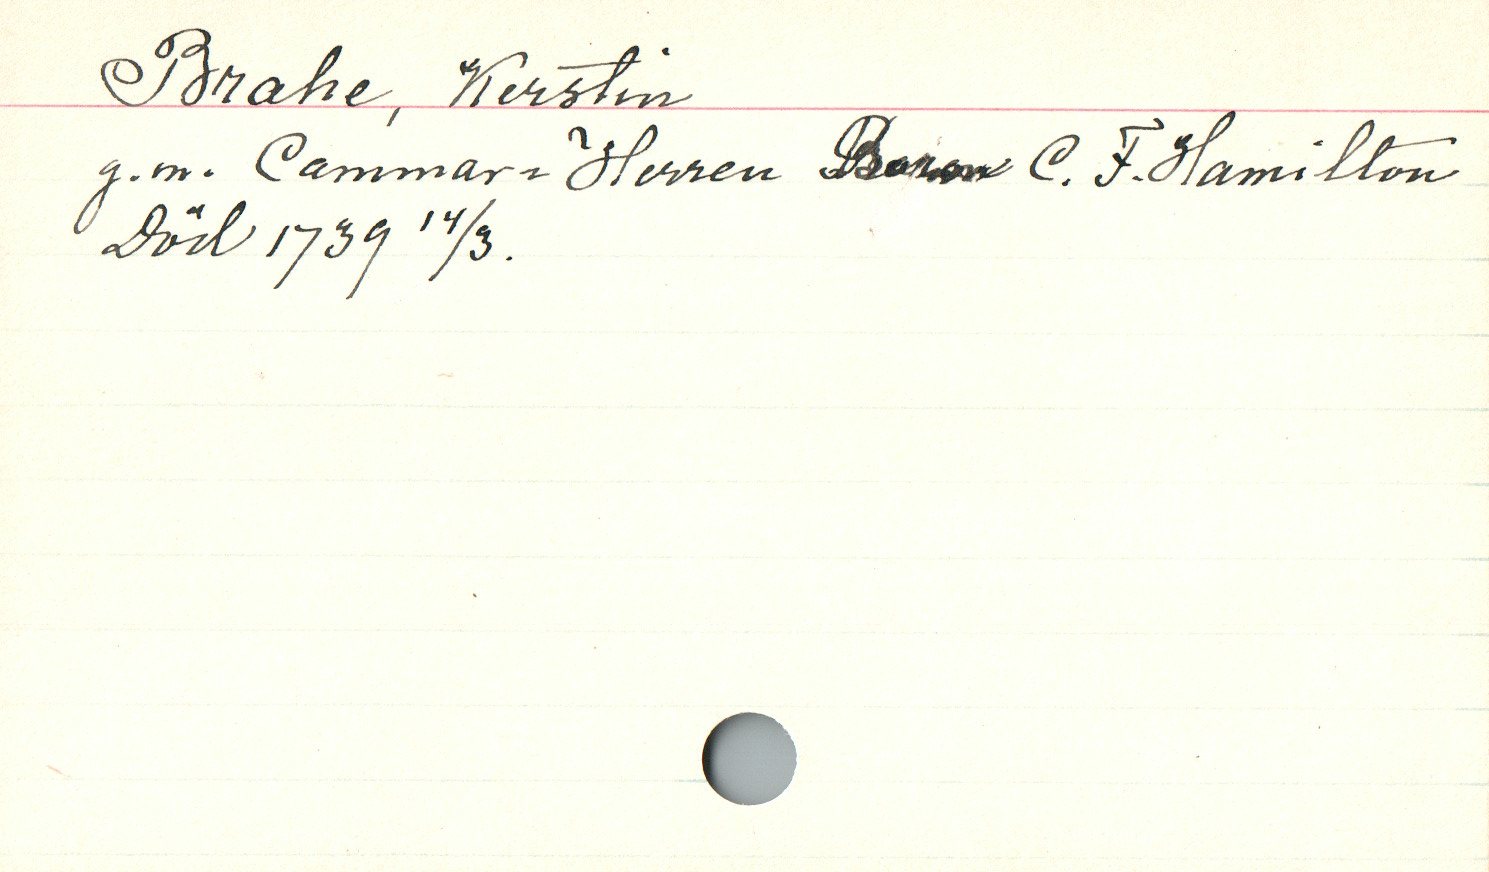 Brahe, Kerstin
g.m. Cammar-Herren Baron C. F. Hamilton
Död 1739 14/3.